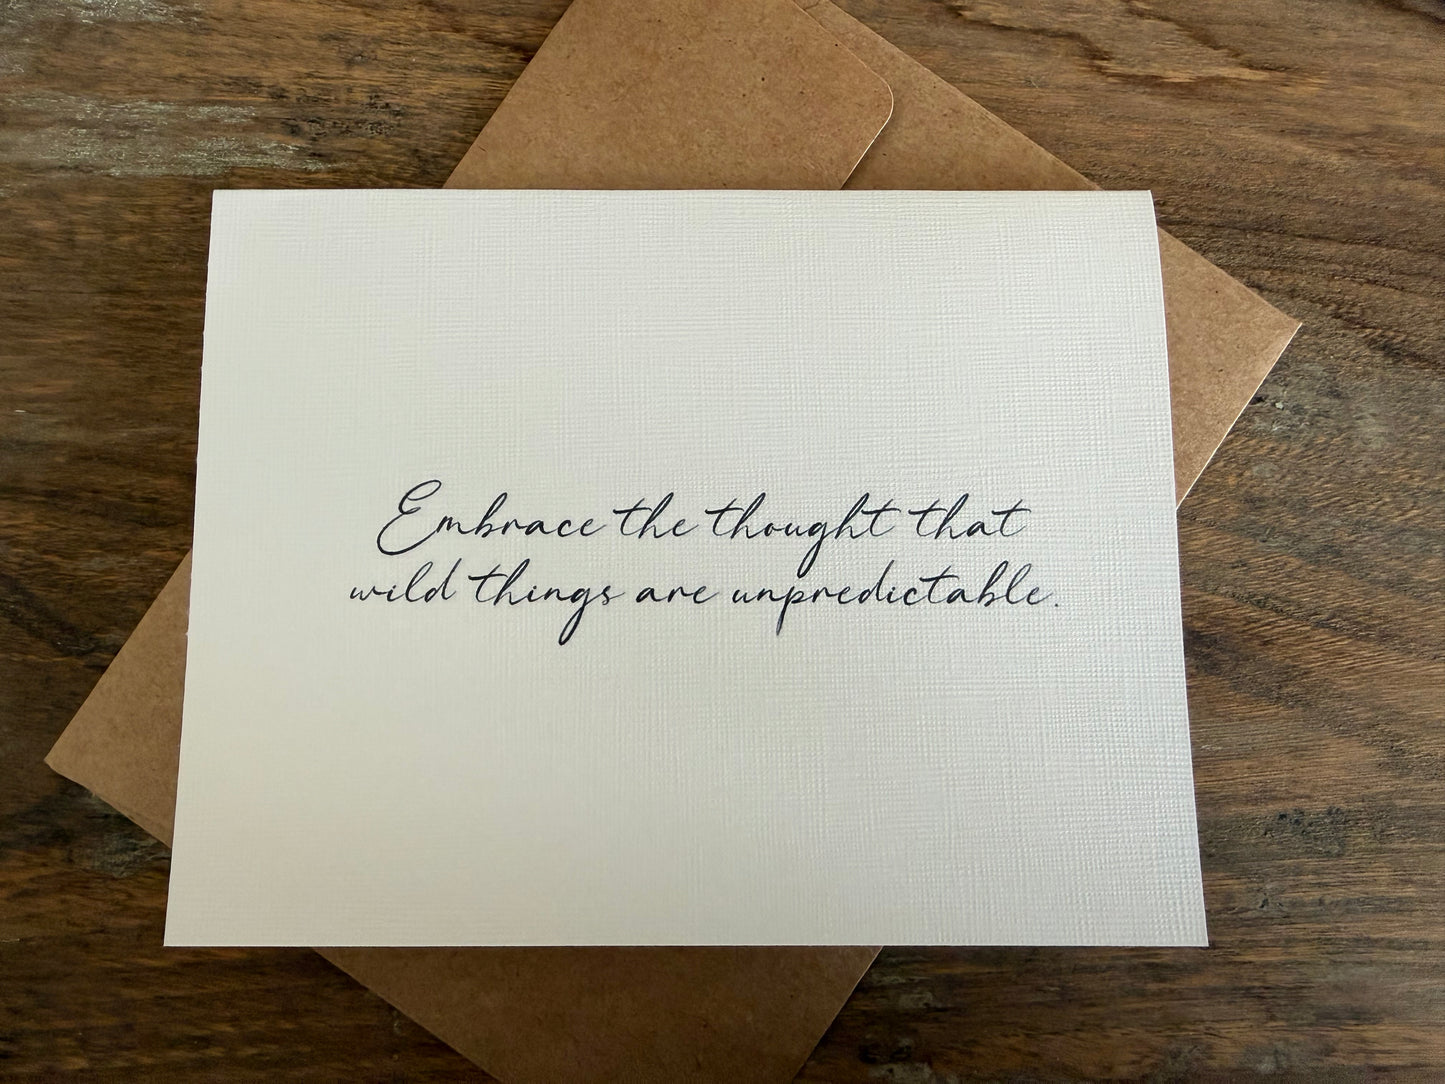 Embrace the thought that
wild things are unpredictable.